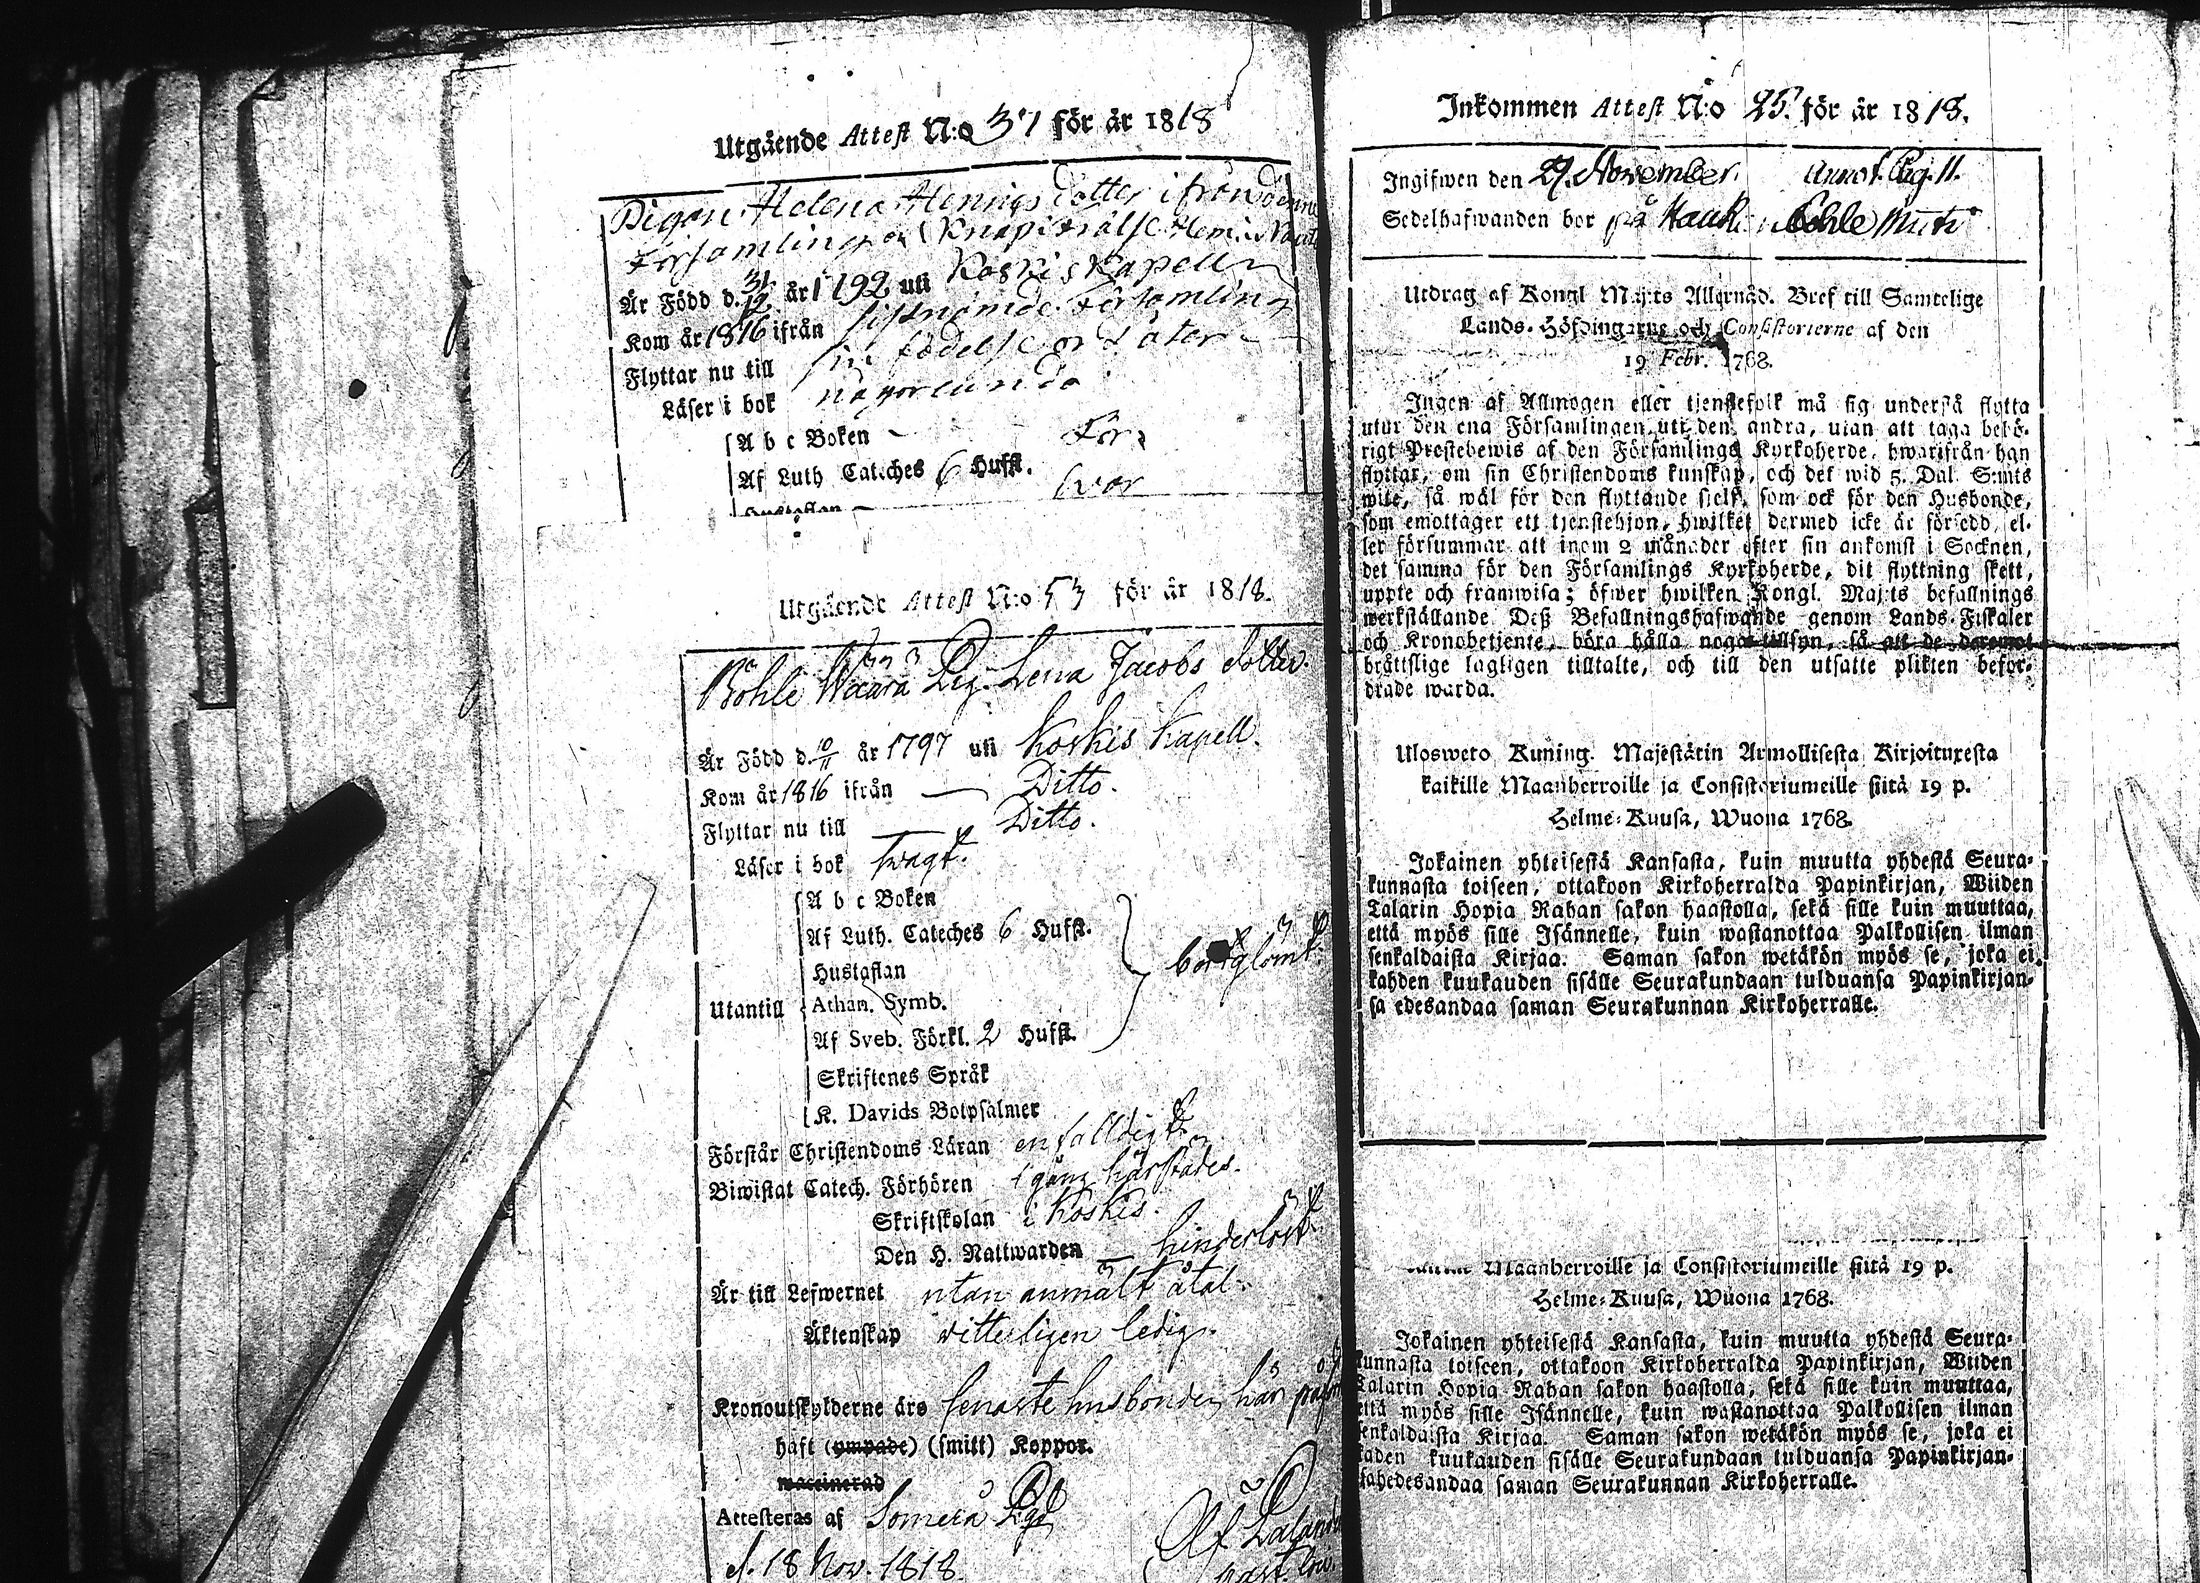 Utgående Attest N:o 37 för år 1818
Pigan Helena Hennigs dotter ifrån denne
Församling och Knapi frälse Hem:n
Är Född d. 31/12 år 1792 uti Koskis Kapell
Kom år 1816 ifrån sistnämde Församling
Flyttar nu till sin födelse ort åter
Läser i bok någorlunda
A b c Boken
Af Luth Cateches 6 Hufst.
Hustaflan
Utgående Attest N:o 53 för år 1818.
Böhle Waara Pig. Lena Jacobs dotter.
Är Född d. 10/11 år 1797 uti Koskis Kapell.
Kom år 1816 ifrån — Ditto.
Flyttar nu till — Ditto.
Läser i bok swagt.
A b c Boken
Af Luth. Cateches 6 Hufst.
Hustaflan
bortglömt.
Utantill Athan. Symb.
Af Sveb. Förkl. 2 Hufst.
Skriftenes Språk
K. Davids Botpsalmer
Förstår Christendoms Läran enfalldigt.
Biwistat Catech. Förhören 1 gång härstädes.
Skriftskolan i Koskis.
Den H. Nattwarden — hinderlöst.
Är till Lefwernet utan anmält åtal.
Äktenskap vitterligen ledig.
Kronoutskylderne äro senaste husbonden här
haft (ympade) (smitt) Koppor.
waccinerad
Attesteras af Somero Pgd
d. 18 Nov. 1818.
Inkommen Attest N:o 25. för år 1818.
Ingifwen den 29. November. Annot. Pag. 11.
Sedelhafwanden bor på
Utdrag af Kongl Maj:ts Allernåd. Bref till Samtelige
Lands-Höfdingarne och Consistorierne af den
19 Febr. 1768.
Ingen af Allmogen eller tjenstefolk må sig understå flytta
utur den ena Församlingen uti den andra, utan att taga behö-
rigt Prestebewis af den Församlings Kyrkoherde, hwarifrån han
flyttar, om sin Christendoms kunskap, och det wid 5. Dal. S:mts
wite, så wäl för den flyttande sjelf, som ock för den Husbonde,
som emottager ett tjenstehjon, hwilket dermed icke är försedd, el-
ler försummar att inom 2 månader efter sin ankomst i Socknen,
det samma för den Församlings Kyrkoherde, dit flyttning skett,
uppte och framwisa; öfwer hwilken Kongl. Maj:ts befallnings
werkställande Deß Befallningshafwande genom Lands-Fiskaler
och Kronobetjente, böra hålla noga tillsyn, så att de deremot
bråttslige lagligen tilltalte, och till den utsatte plikten befor-
drade warda.
Ulosweto Kuning. Majestätin Armollisesta Kirjoituxesta
kaikille Maanherroille ja Consistoriumeille siitä 19 p.
Helme-Kuusa, Wuona 1768.
Jokainen yhteisestä Kansasta, kuin muutta yhdestä Seura-
kunnasta toiseen, ottakoon Kirkoherralda Papinkirjan, Wiiden
Talarin Hopia Rahan sakon haastolla, sekä sille kuin muuttaa,
että myös sille Isännelle, kuin wastanottaa Palkollisen ilman
senkaldaista Kirjaa. Saman sakon wetäkön myös se, joka ei
kahden kuukauden sisälle Seurakundaan tulduansa Papinkirjan-
sa edesandaa saman Seurakunnan Kirkoherralle.
Maanherroille ja Consistoriumeille siitä 19 p.
Helme-Kuusa, Wuona 1768.
Jokainen yhteisestä Kansasta, kuin muutta yhdestä Seura-
kunnasta toiseen, ottakoon Kirkoherralda Papinkirjan, Wiiden
Talarin Hopia Rahan sakon haastolla, sekä sille kuin muuttaa,
että myös sille Isännelle, kuin wastanottaa Palkollisen ilman
senkaldaista Kirjaa. Saman sakon wetäkön myös se, joka ei
kaden kuukauden sisälle Seurakundaan tulduansa Papinkirjan-
sahedesandaa saman Seurakunnan Kirkoherralle.